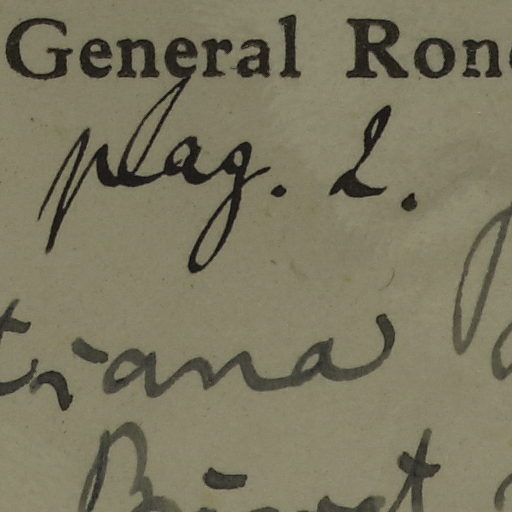 General Ron
plag. 2.
tiana